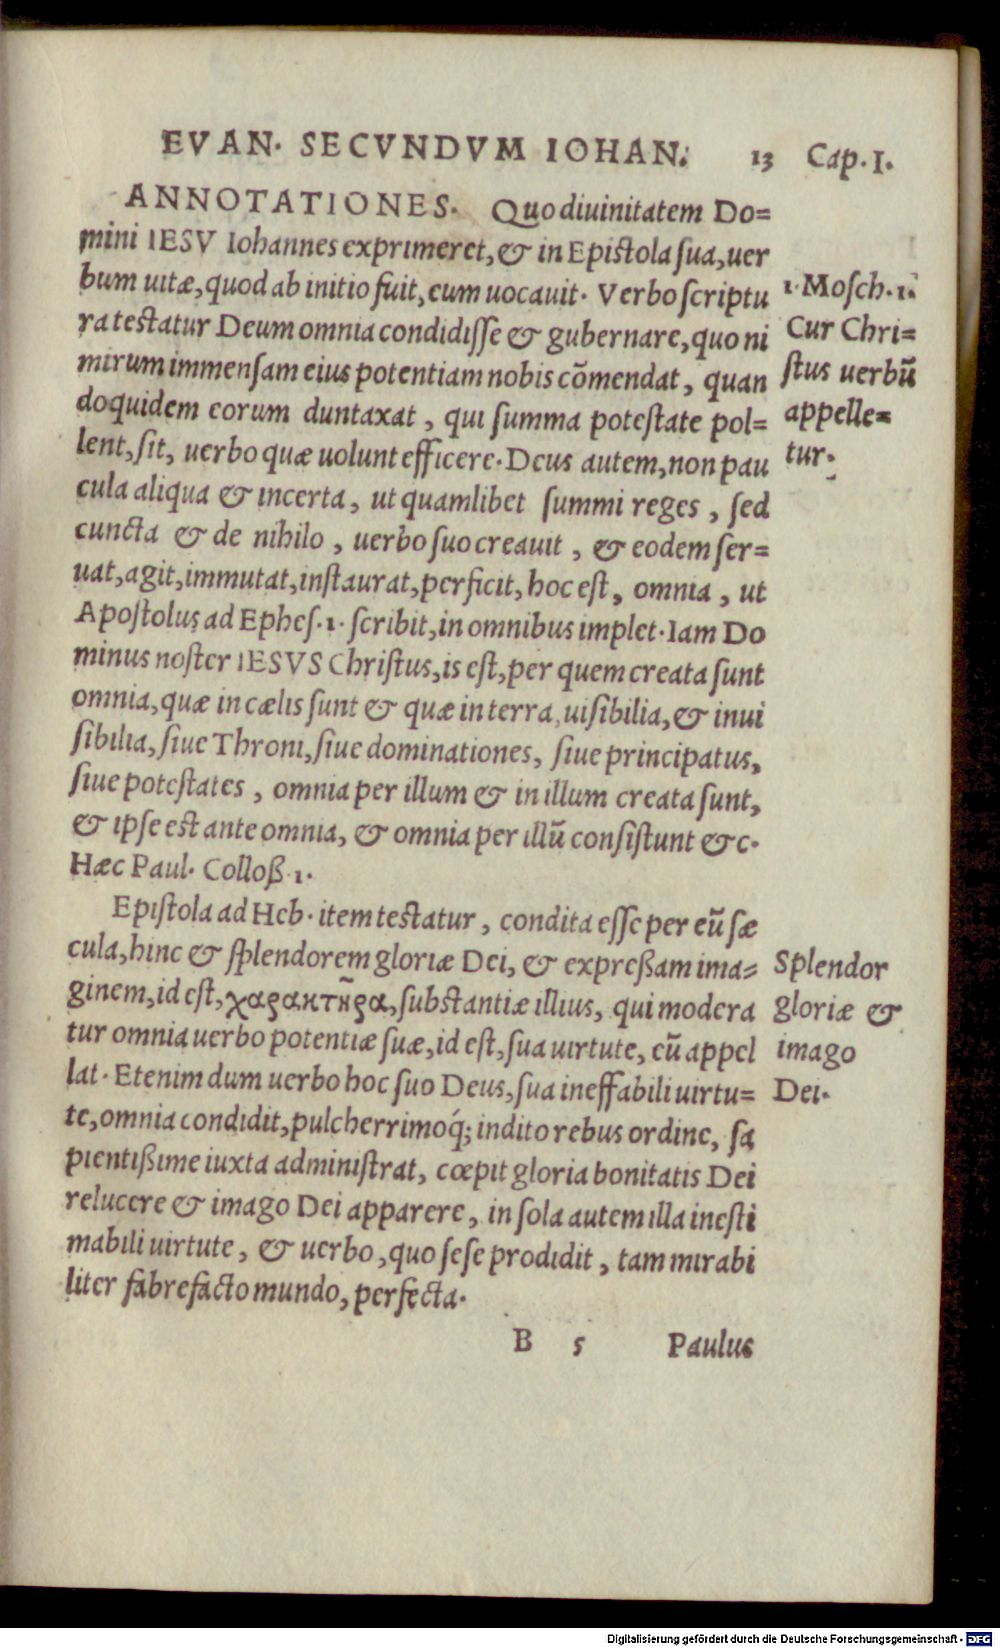 EVAN. SECVNDVM IOHAN. 13 Cap. I.
ANNOTATIONES. Quo diuinitatem Do=
mini IESV Iohannes exprimeret, & in Epistola sua, uer
bum uitæ, quod ab initio fuit, eum uocauit. Verbo scriptu
ra testatur Deum omnia condidisse & gubernare, quo ni
mirum immensam eius potentiam nobis cōmendat, quan
doquidem eorum duntaxat, qui summa potestate pol=
lent, sit, uerbo quæ uolunt efficere. Deus autem, non pau
cula aliqua & incerta, ut quamlibet summi reges, sed
cuncta & de nihilo, uerbo suo creauit, & eodem ser=
uat, agit, immutat, instaurat, perficit, hoc est, omnia, ut
Apostolus ad Ephes. 1. scribit, in omnibus implet. Iam Do
minus noster IESVS Christus, is est, per quem creata sunt
omnia, quæ in cælis sunt & quæ in terra, uisibilia, & inui
sibilia, siue Throni, siue dominationes, siue principatus,
siue potestates, omnia per illum & in illum creata sunt,
& ipse est ante omnia, & omnia per illū consistunt &c.
Hæc Paul. Colloß. 1.
Epistola ad Heb. item testatur, condita esse per eū sæ
cula, hinc & splendorem gloriæ Dei, & expreßam ima=
ginem, id est, χαρακτῆρα, substantiæ illius, qui modera
tur omnia uerbo potentiæ suæ, id est, sua uirtute, eū appel
lat. Etenim dum uerbo hoc suo Deus, sua ineffabili uirtu=
te, omnia condidit, pulcherrimoq́; indito rebus ordine, sa
pientißime iuxta administrat, cœpit gloria bonitatis Dei
relucere & imago Dei apparere, in sola autem illa inesti
mabili uirtute, & uerbo, quo sese prodidit, tam mirabi
liter fabrefacto mundo, perfecta.
B 5 Paulus
1. Mosch. 1.
Cur Chri=
stus uerbū
appelle=
tur.
Splendor
gloriæ &
imago
Dei.
Digitalisierung gefördert durch die Deutsche Forschungsgemeinschaft - DFG